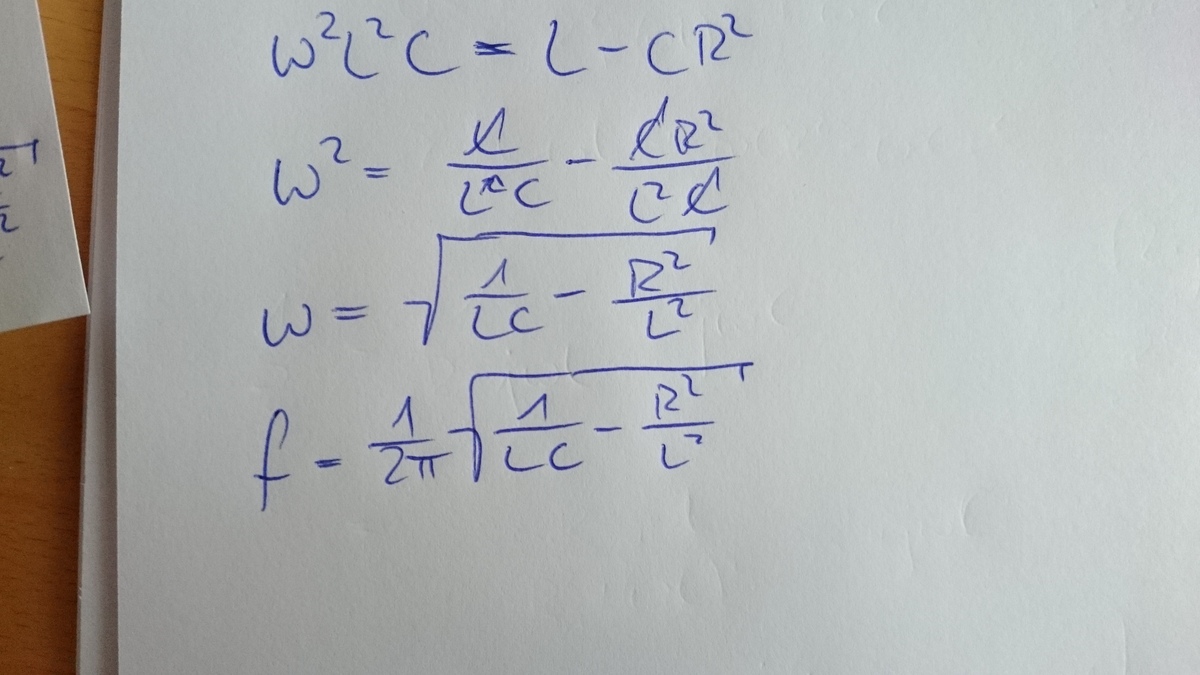 ω²L²C = L - CR²
ω² = L/L²C - CR²/L²C
ω = √(1/LC - R²/L²)
f = 1/2π √(1/LC - R²/L²)